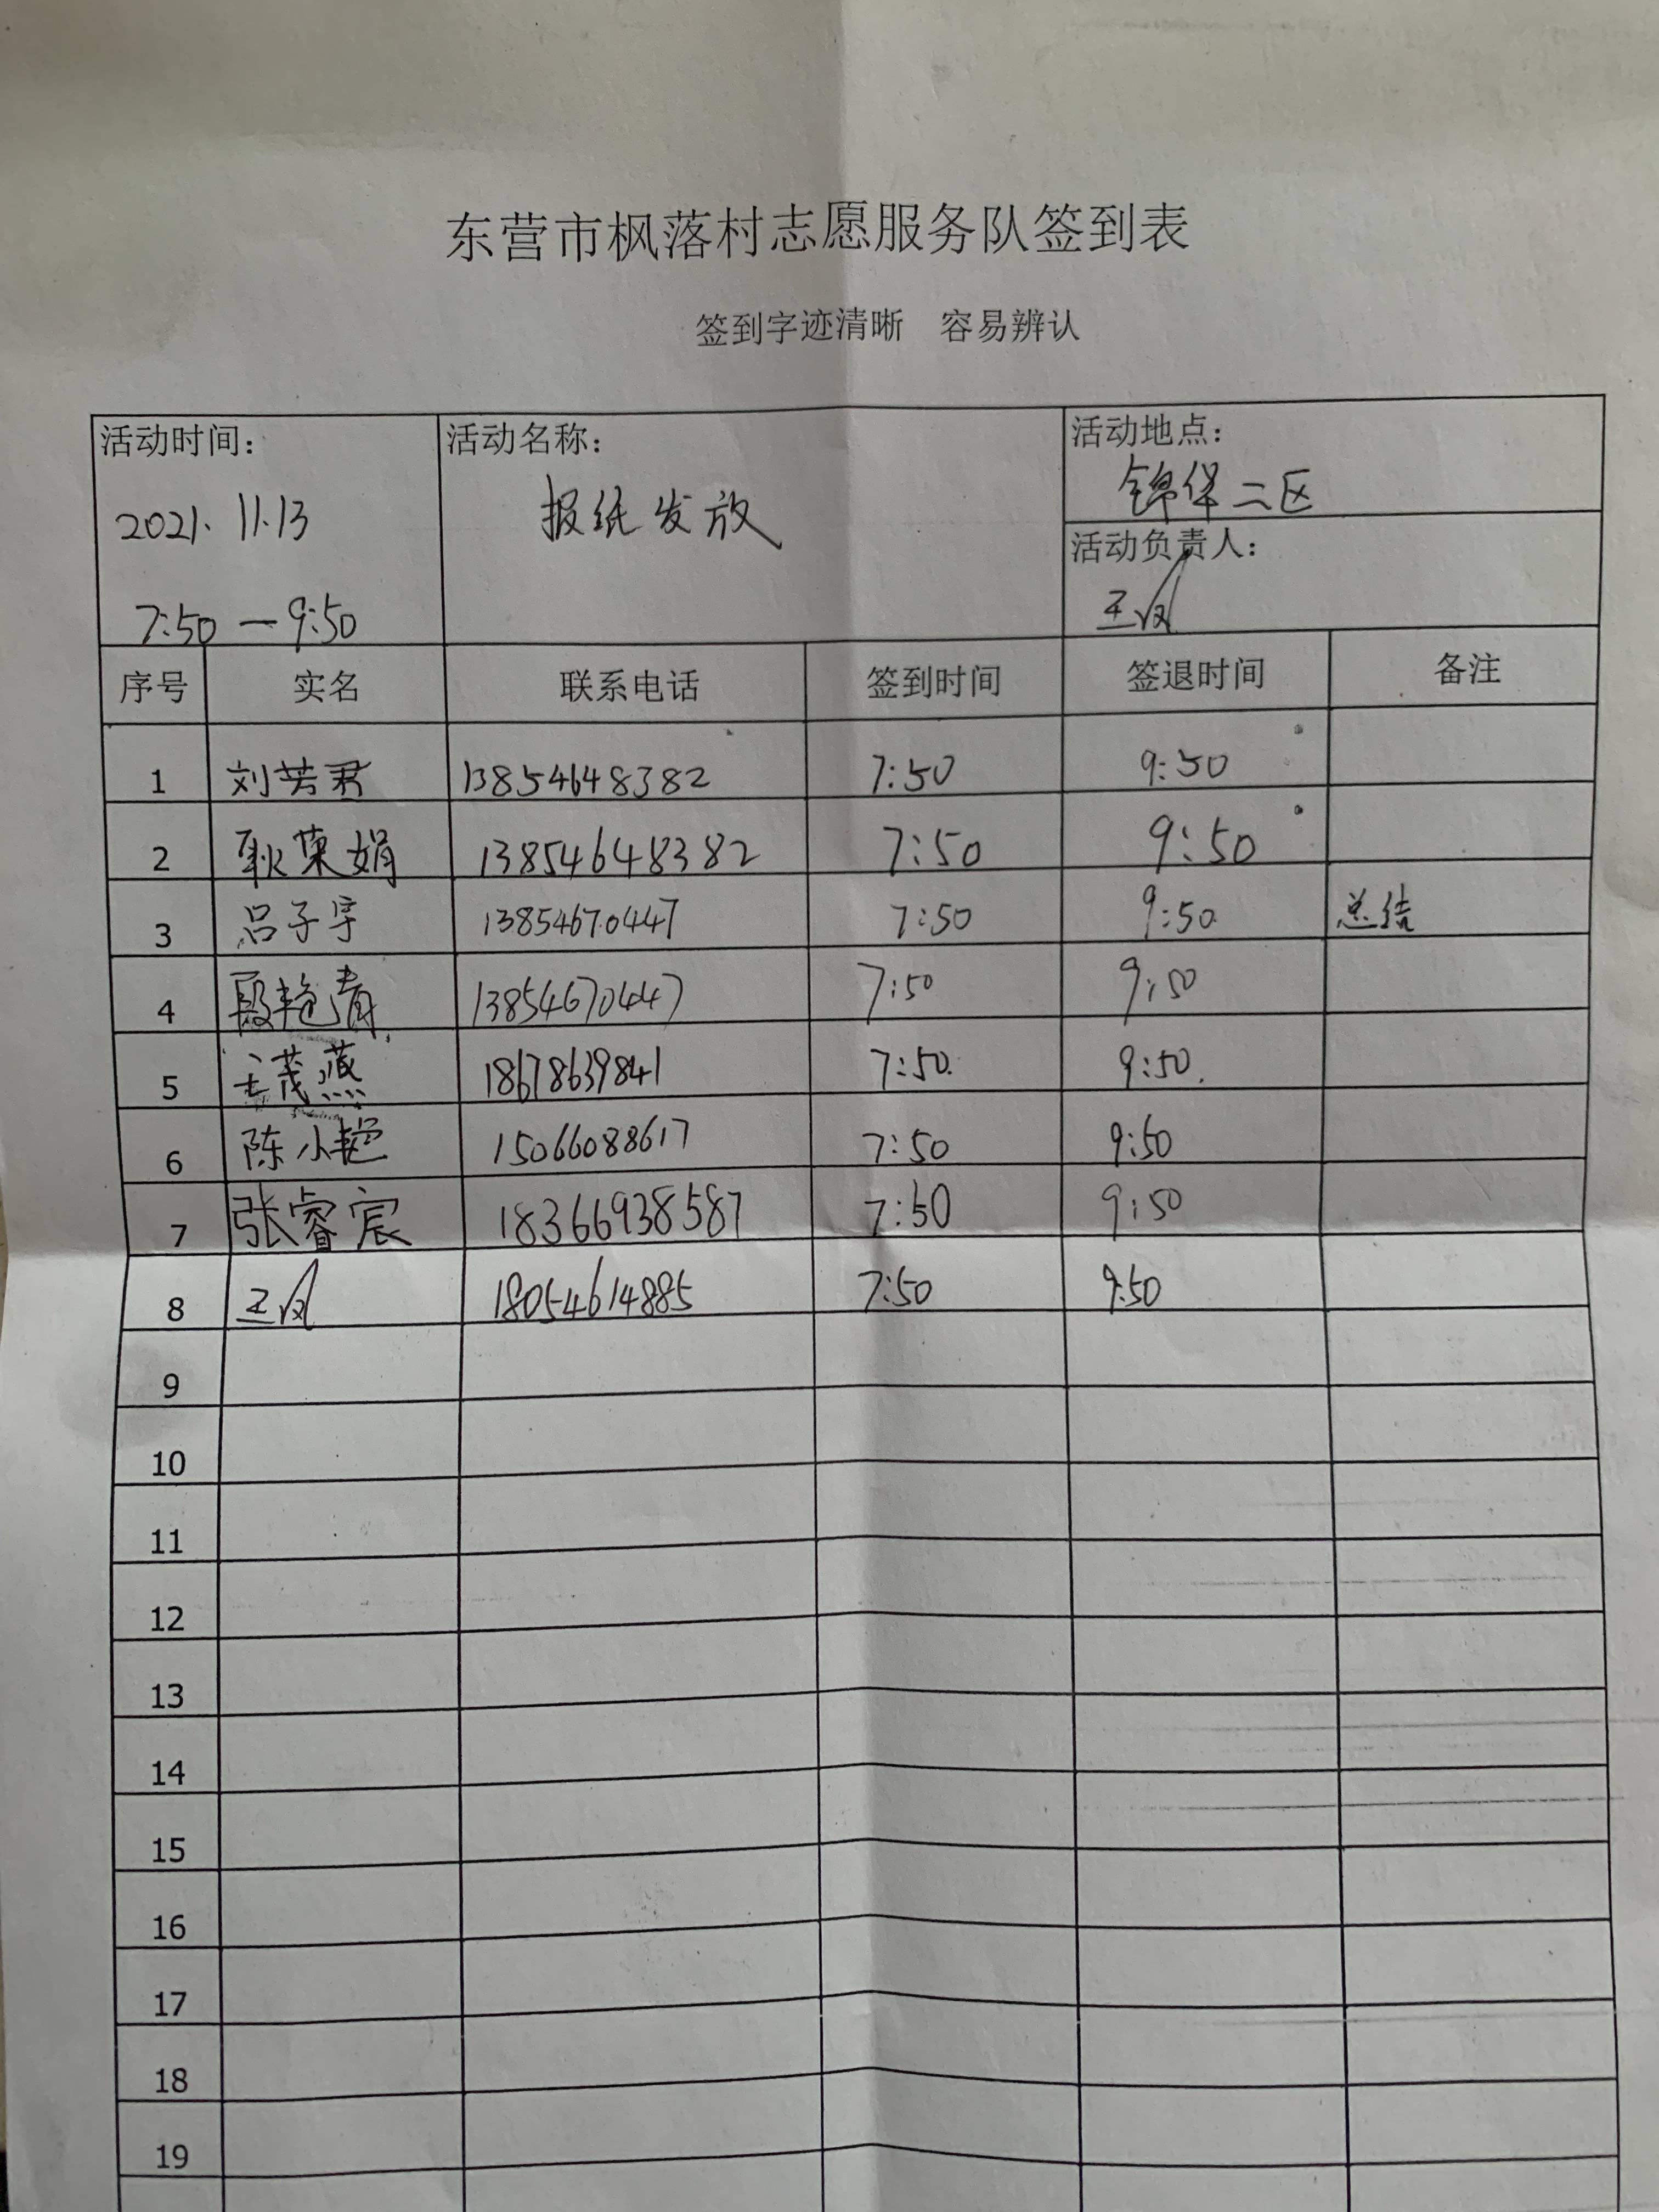 东营市枫落村志愿服务队签到表
签到字迹清晰 容易辨认
活动时间: 活动名称: 活动地点:
锦华二区
2021.11.13 报纸发放
活动负责人:
7:50—9:50 王
序号 实名 联系电话 签到时间 签退时间 备注
1 刘芳君 13854648382 7:50 9:50
2 耿荣娟 13854648382 7:50 9:50
3 吕子宇 13854670447 7:50 9:50 总结
4 段艳青 13854670447 7:50 9:50
5 茂燕 18678639841 7:50. 9:50.
6 陈小艳 15066088617 7:50 9:50
7 张睿宸 18366938587 7:50 9:50
8 王 18054614885 7:50 9:50
9
10
11
12
13
14
15
16
17
18
19